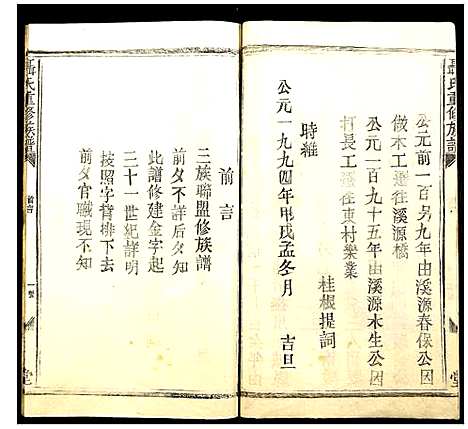 聶氏重修族譜
公元前一百另九年由溪源春保公因
做木工遷往溪源橋
公元一百九十五年由溪源木生公因
打長工遷往東村樂業
桂根提詞
時維
公元一九九四年甲戌孟冬月
吉旦
堂
前言
三族聯盟修族譜
前夕不詳后夕知
此譜修建金字起
三十一世紀諸明
按照字背排下去
前夕官職現不知
聶氏重修族譜
前言
一
堂